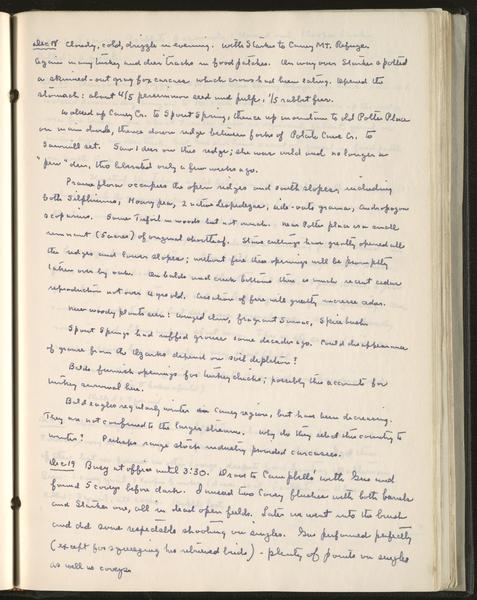 Dec 18 Cloudy, cold, drizzle in evening. With Starker to Caney Mt. Refuge.
Again many turkey and deer tracks in food patches. On way over Starker spotted
a skinned-out gray fox carcass which crows had been eating. Opened the
stomach: about 4/5 persimmon seed and pulp, 1/5 rabbit fur.
Walked up Caney Cr. to Spout Spring, thence up mountain to old Potter Place
on main divide, thence down ridge between forks of Potato Cave Cr. to
Sawmill set. Saw 1 deer on this ridge; she was wild and no longer a
"pen" deer, tho liberated only a few weeks ago.
Prairie flora occupies the open ridges and south slopes, including
both Silphiums, Hoary pea, 2 native Lespedezas, side-oats grama, Andropogon
scoparius. Some Trefoil in woods but not much. Near Potter place is a small
remnant (5 acres) of original shortleaf. Stave cuttings have greatly opened all
the ridges and lower slopes; without fire these openings will be promptly
taken over by oak. On balds and creek bottoms there is much recent cedar
reproduction not over 4 yrs old. Cessation of fire will greatly increase cedar.
New woody plants seen: winged elm, fragrant Sumac, Spice bush
Spout Springs had ruffed grouse some decades ago. Could disappearance
of grouse from the Ozarks depend on soil depletion?
Balds furnish openings for turkey chicks; possibly this accounts for
turkey survival here.
Bald eagles regularly winter in Caney region, but have been decreasing.
They are not confined to the larger streams. Why do they select this country to
winter? Perhaps range stock industry provided carcasses.
Dec 19 Busy at office until 3:30. Drove to Campbells' with Gus and
found 5 coveys before dark. I missed two covey flushes with both barrels
and Starker one, all in dead open fields. Later we went into the brush
and did some respectable shooting on singles. Gus performed perfectly
(except for squeezing his retrieved birds) - plenty of points on singles
as well as coveys.